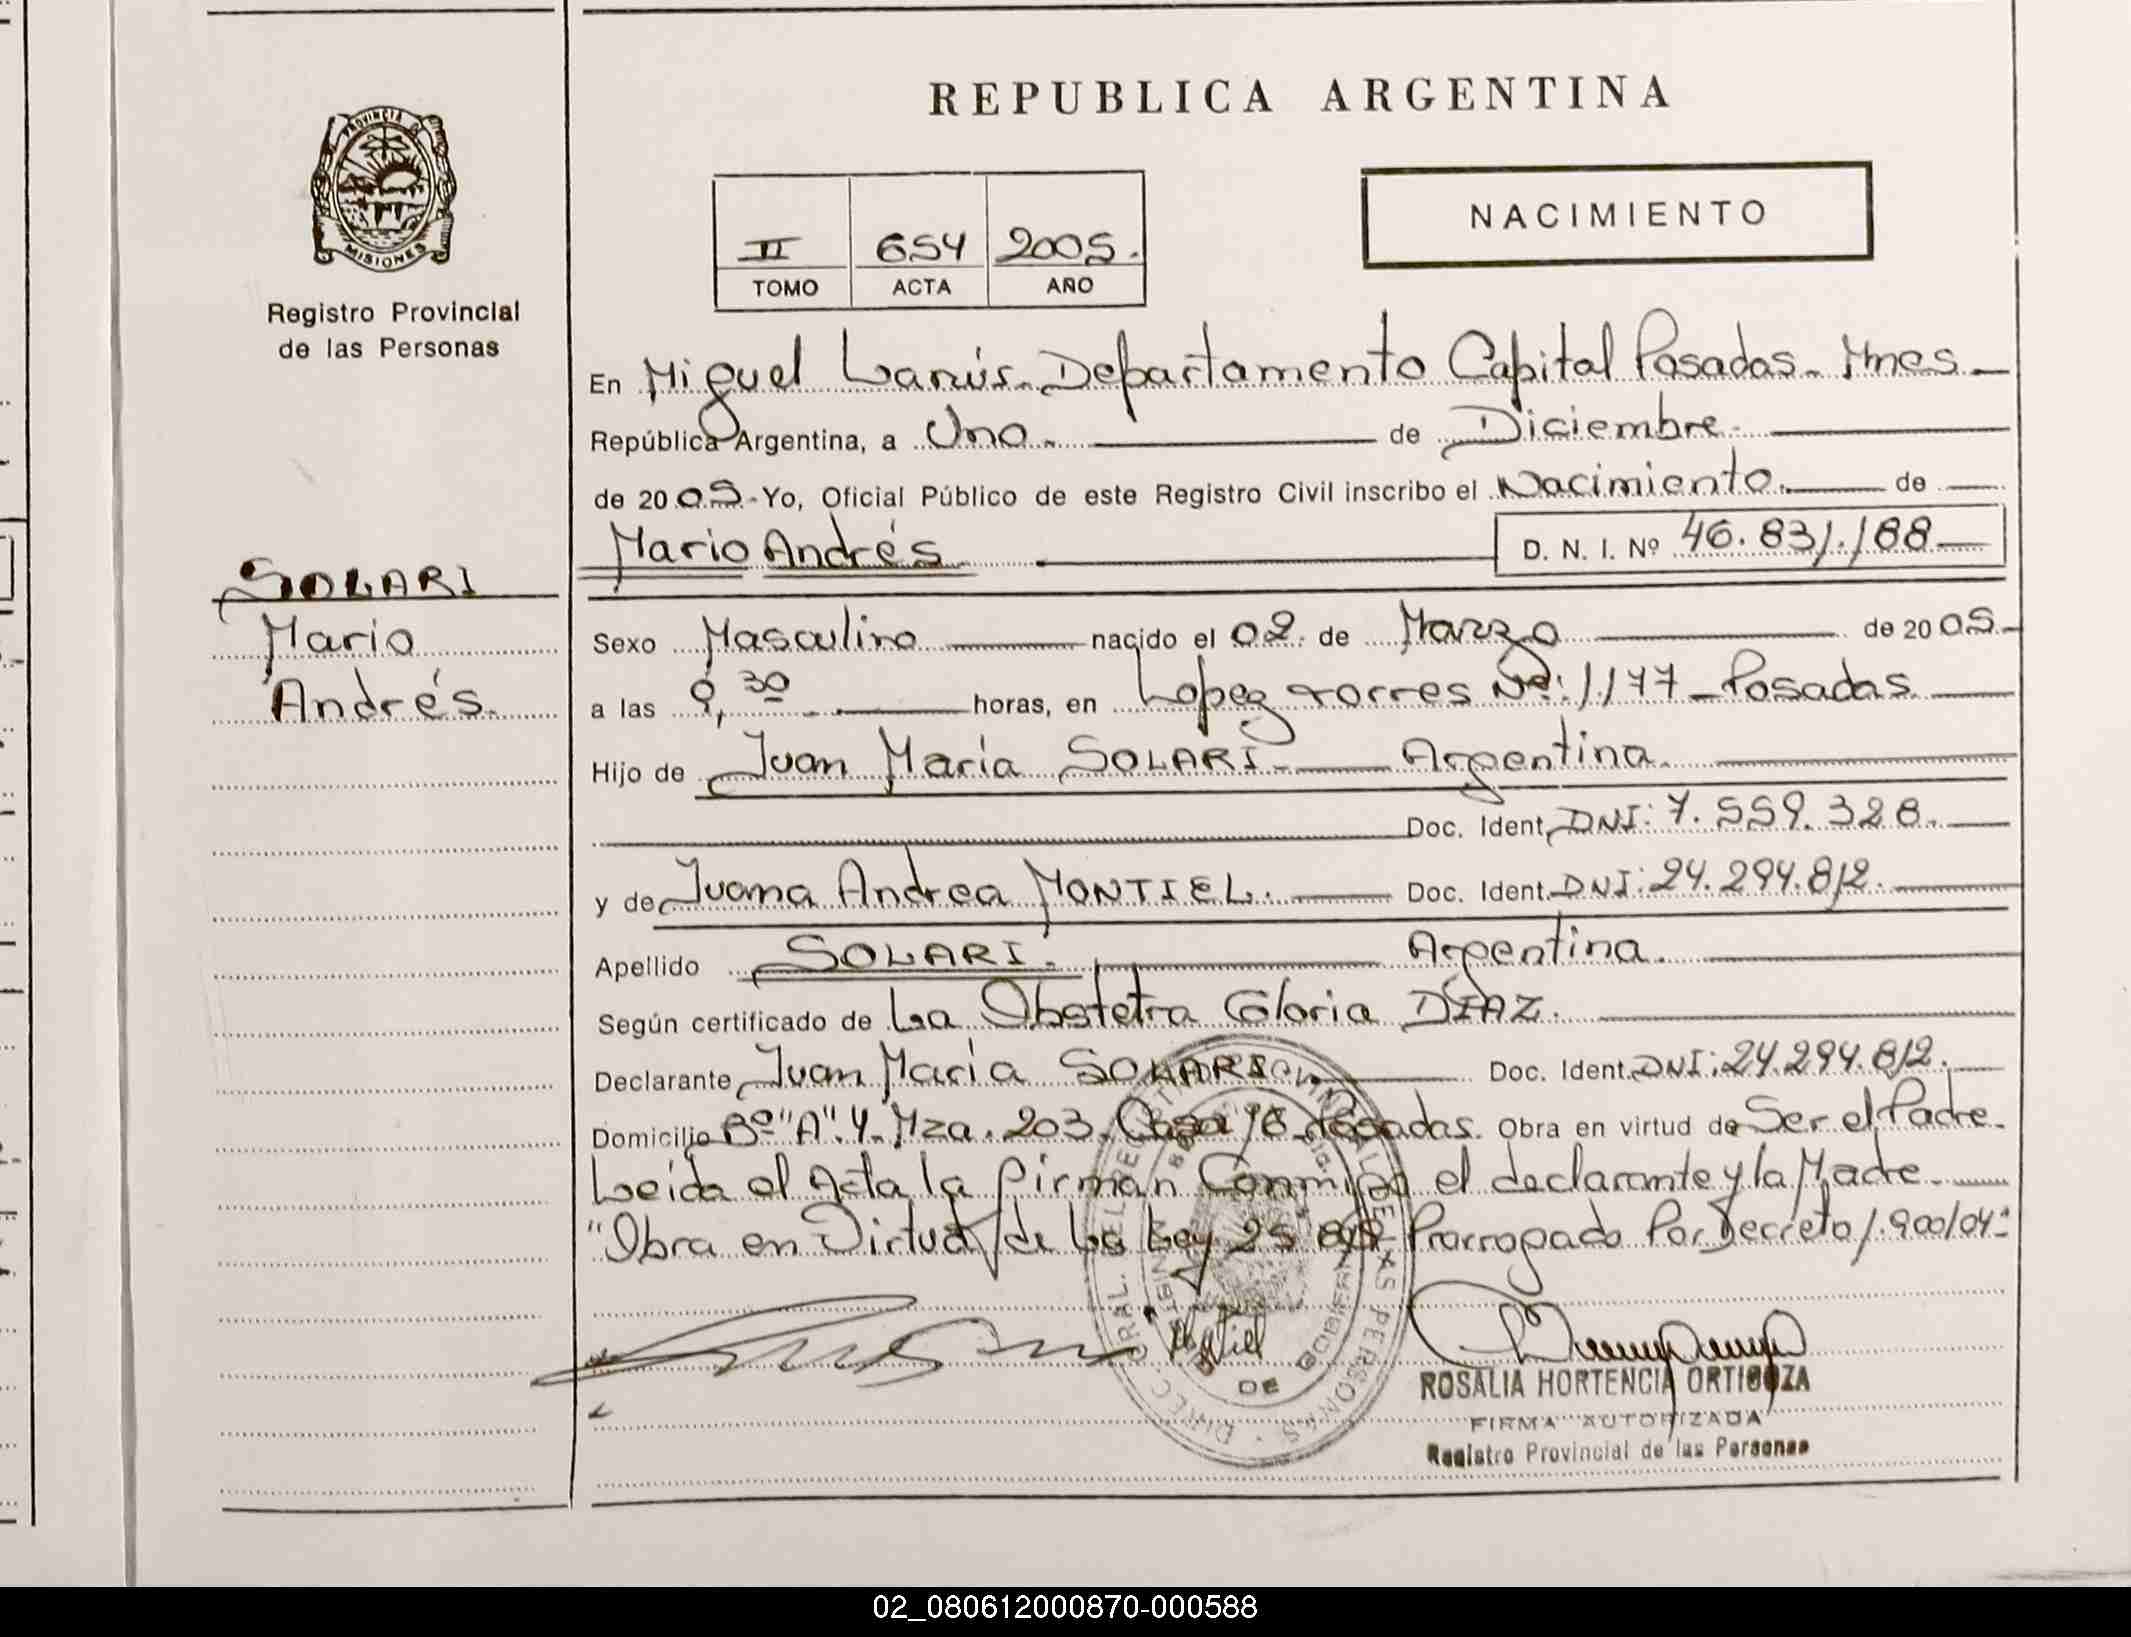 REPUBLICA ARGENTINA
PROVINCIA DE
MISIONES
Registro Provincial
de las Personas
II 654 2005.
TOMO ACTA AÑO
NACIMIENTO
En Miguel Lanús. Departamento Capital Posadas. Mnes
República Argentina, a Uno. de Diciembre.
de 2005. Yo, Oficial Público de este Registro Civil inscribo el Nacimiento. de
Mario Andrés D. N. I. Nº 46.831.188
SOLARI
Mario
Andrés.
Sexo Masculino nacido el 02. de Marzo de 2005.
a las 9,30 horas, en Lopez torres Nº: 1.177 Posadas
Hijo de Juan María SOLARI Argentina.
Doc. Ident. DNI: 7.559.328.
y de Juana Andrea MONTIEL. Doc. Ident. DNI: 24.294.812.
Apellido SOLARI. Argentina.
Según certificado de La Obstetra Gloria DIAZ.
Declarante Juan María SOLARI Doc. Ident. DNI: 24.294.812.
Domicilio Bº "A".4. Mza. 203. Casa 16 Posadas. Obra en virtud de Ser el Padre.
Leida el Acta la firman Conmigo el declarante y la Madre.
"Obra en Virtud de La Ley 25 Prorrogado Por Decreto 1.900/04"
ROSALIA HORTENCIA ORTIGOZA
FIRMA AUTORIZADA
Registro Provincial de las Personas
02_080612000870-000588